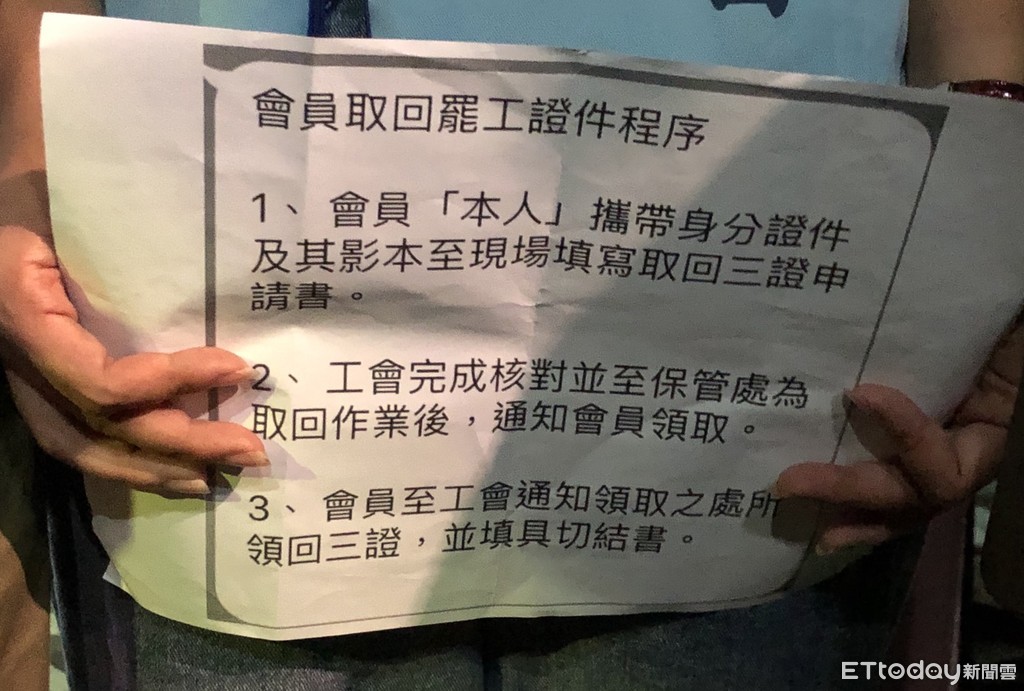 會員取回罷工證件程序
1、 會員「本人」攜帶身分證件
及其影本至現場填寫取回三證申
請書。
2、 工會完成核對並至保管處為
取回作業後，通知會員領取。
3、 會員至工會通知領取之處所
領回三證，並填具切結書。
ETtoday新聞雲